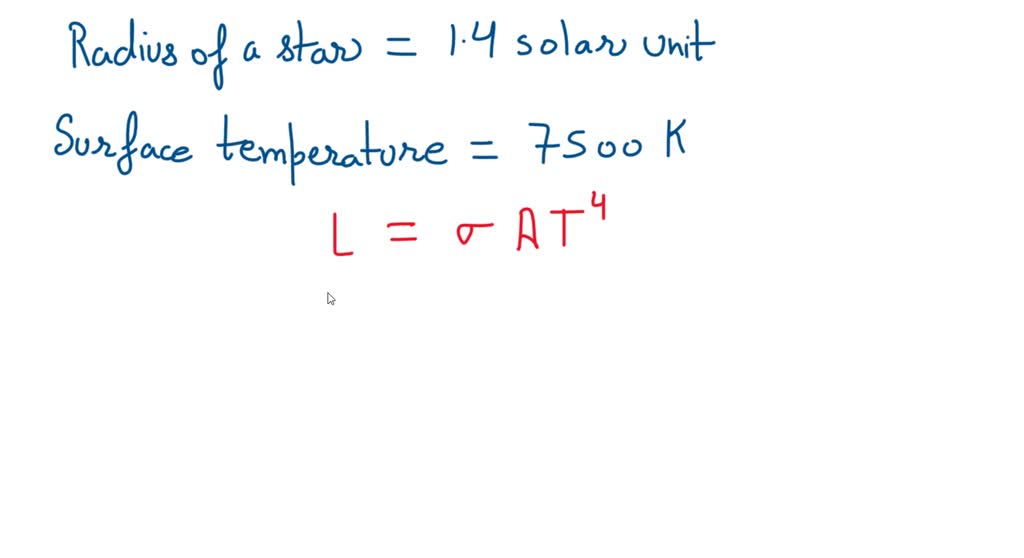 Radius of a star = 1.4 solar unit
Surface temperature = 7500 K
L = σ A T⁴